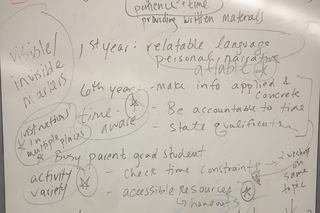 patience + time
providing written materials
visible/
invisible
markers
1st year: relatable language
personal narrative
6th year - make info applied &
concrete
time-
aware
- Be accountable to time
- State qualifications
instructions
in
multiple
places
& Busy parent grad student
- Check time constraints
activity
variety
- accessible resources
↳ handouts
on
same
topic